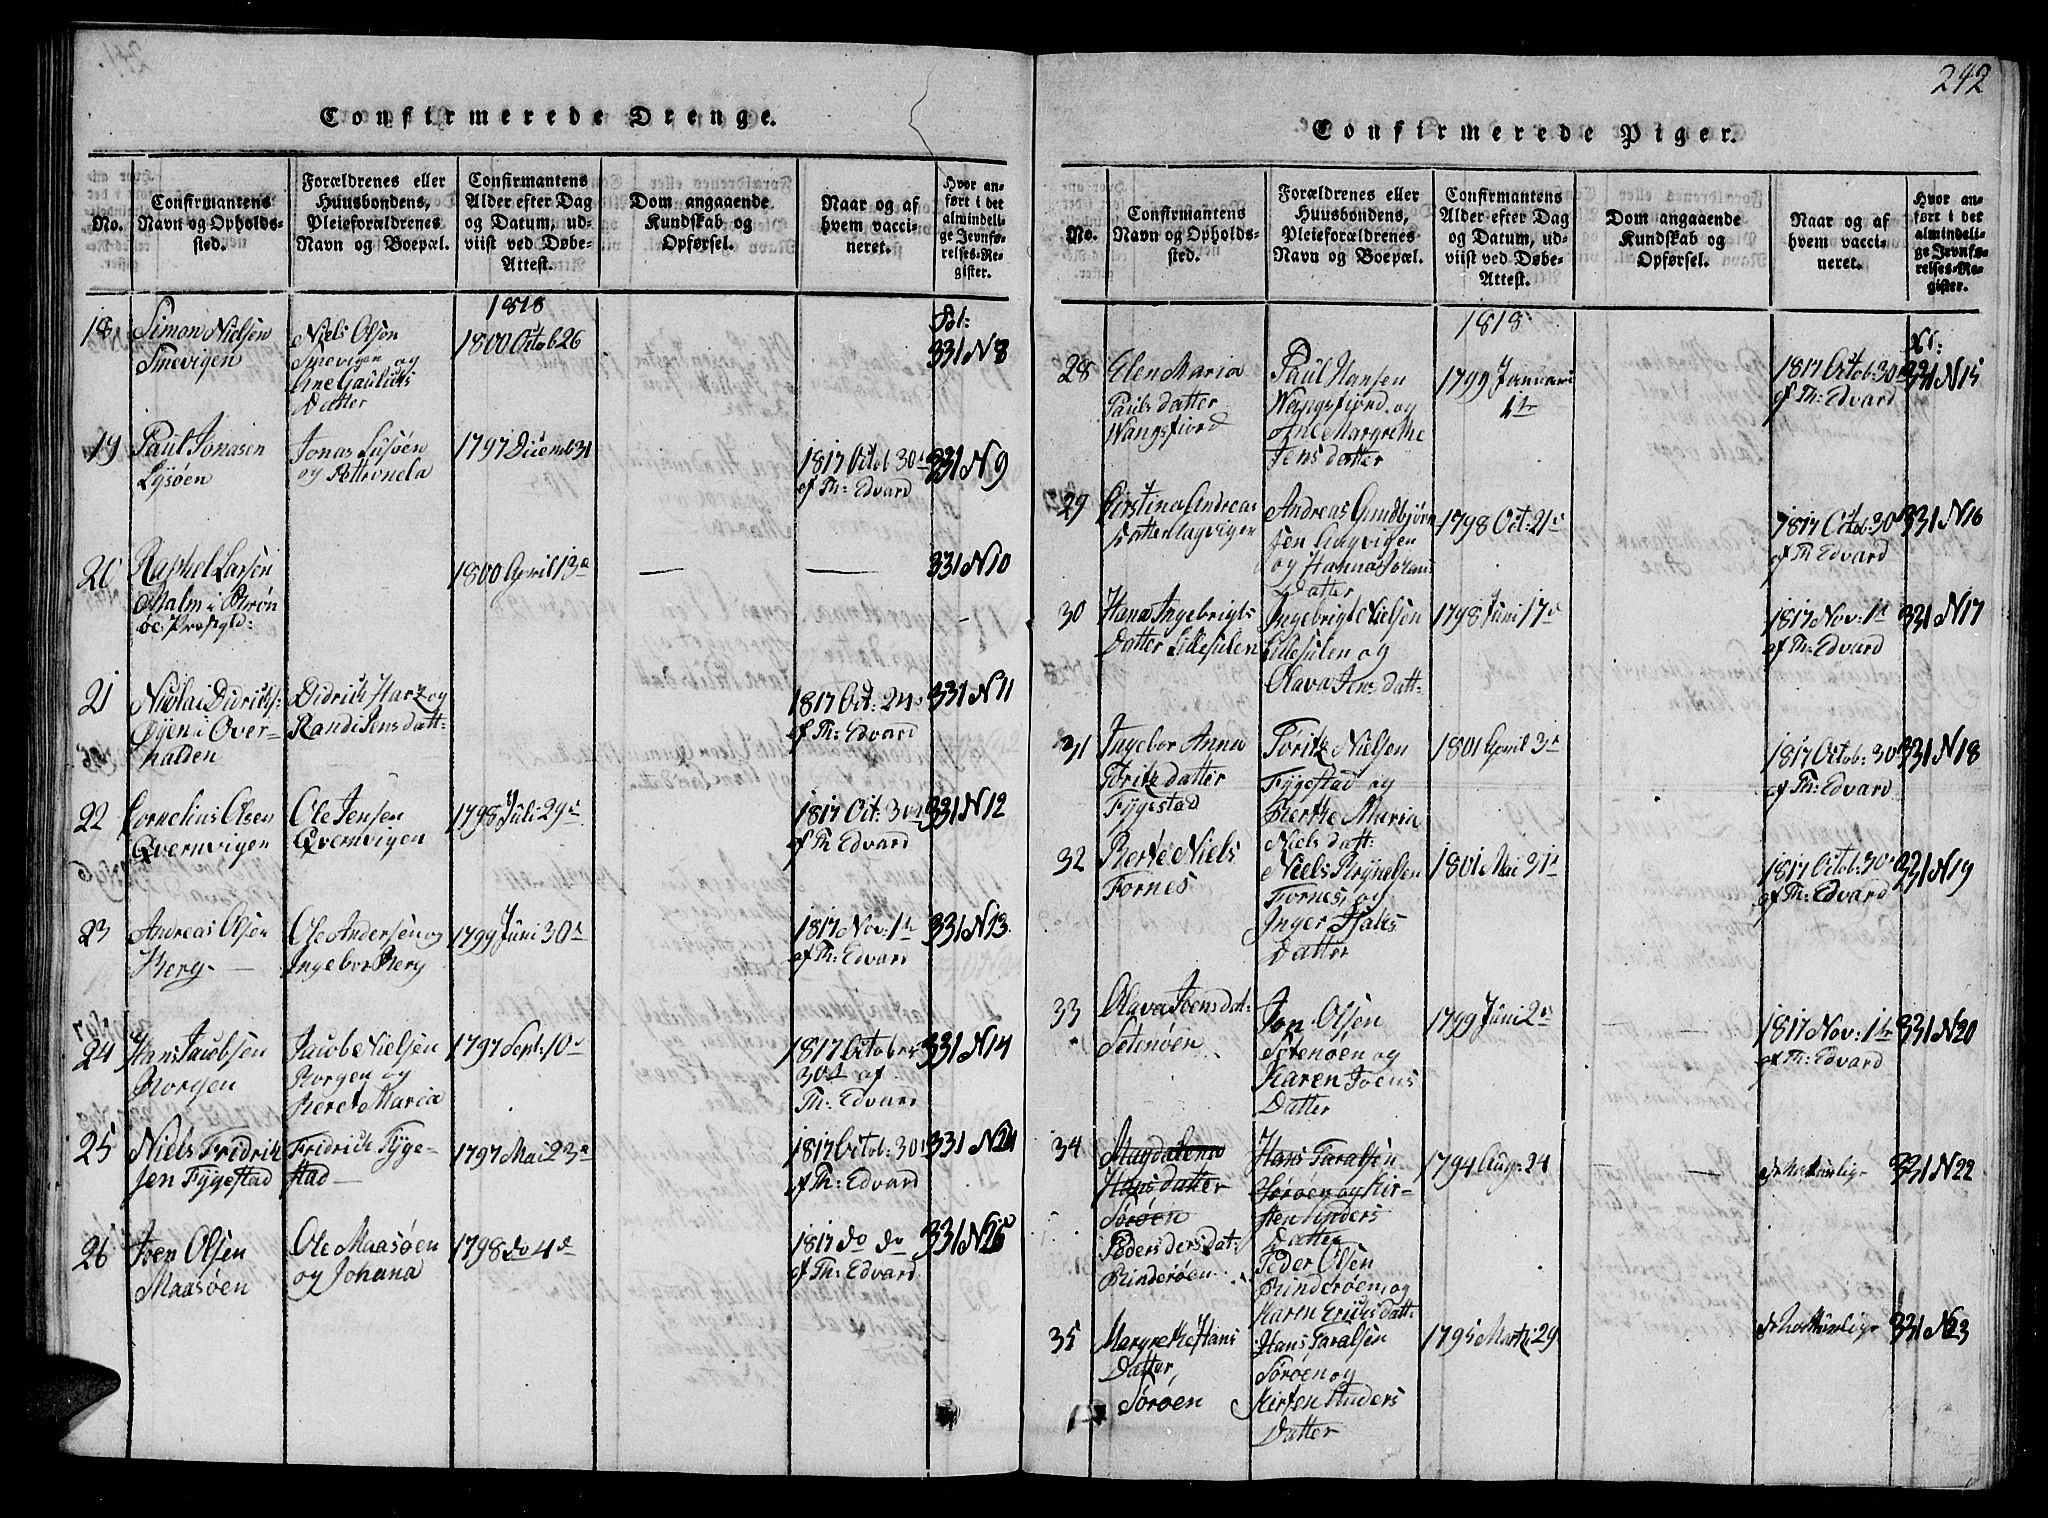 241.
Confirmerede Drenge.
No.
Confirmantens
Navn og Opholds-
sted.
Forældrenes eller
Huusbondens,
Pleieforældrenes
Navn og Boepæl.
Confirmantens
Alder efter Dag
og Datum, ud-
viist ved Døbe-
Attest.
Dom angaaende
Kundskab og
Opførsel.
Naar og af
hvem vacci-
neret.
Hvor an-
ført i det
almindeli-
ge Jevnfø-
relses-Re-
gister.
1818
Fol:
18 Simon Nielsen
Smevigen
Niels Olsen
Smevigen og
Datter
1800 Octob 26
331 N 8
19 Paul Jonasen
Lysøen
Jonas Lysøen
og Pettronela
1797 Decemb 31
1817 Octob 30
af Th: Edvard
331 N 9
20 Raphel Larsen
Malm i
1800 April 13
331 N 10
21 Nicolai Didrichs
Øyen i Over-
halden
Didrich Hartz og
Randi Jensdatt:
1817 Oct: 24
af Th: Edvard
331 N 11
22 Cornelius Olsen
Qvernvigen
Ole Jensen
Qvernvigen
1798 Juli 29
1817 Oct: 30
af Th Edvard
331 N 12
23 Andreas Olsen
Berg
Ole Andersen og
Ingebor Berg
1799 Juni 30
1817 Nov: 1
af Th: Edvard
331 N 13
24 Hans Jacobsen
Borgen
Jacob Nielsen
Borgen og
Beret Maria
1797 Sept: 10
1817 October
30 af
Th: Edvard
331 N 14
25 Niels Fridrich
sen Fygestad
Fridrich Fyge-
stad
1797 Mai 23
1817 Octob: 30
af Th: Edvard
331 N 24
26 Joen Olsen
Maasøen
Ole Maasøen
og Johana
1798 do 4
1817 do do
af Th: Edvard
331 N 25
242
Confirmerede Piger.
No.
Confirmantens
Navn og Opholds-
sted.
Forældrenes eller
Huusbondens,
Pleieforældrenes
Navn og Boepæl.
Confirmantens
Alder efter Dag
og Datum, ud-
viist ved Døbe-
Attest.
Dom angaaende
Kundskab og
Opførsel.
Naar og af
hvem vacci-
neret.
Hvor an-
ført i det
almindeli-
ge Jevnfø-
relses-Re-
gister.
1818
28 Elen Maria
Pauls datter
Wangsfiord
Paul Hansen
Wangsfiord og
Ane Margrethe
Jens datter
1799 Januari
1817 Octob: 30
af Th: Edvard
331 N 15
29 Kirstina Andreas
datter Lagvigen
Andreas Gundbjørn
sen Lagvigen
og Hanna
Datter
1798 Oct: 21
1817 Octob: 30
af Th Edvard
331 N 16
30 Hana Ingebrigts
Datter Lillesulen
Ingebrigt Nielsen
Lillesulen og
Olava Jens datt:
1798 Juni 17
1817 Nov: 1
af Th: Edvard
331 N 17
31 Ingebor Anna
Fritz datter
Fygestad
Fritz Nielsen
Fygestad og
Berthe Maria
Niels datt:
1801 April 3
1817 Octob: 30
af Th: Edvard
331 N 18
32 Berte Niels
Fornes
Niels Brynelsen
Fornes, og
Inger
Datter
1801 Mai 31
1817 Octob: 30
af Th: Edvard
331 N 19
33 Olava Joens dat:
Setenøen
Jon Olsen
Setenøen og
Karen Joens
Datter
1799 Juni 2
1817 Nov: 1
af Th: Edvard
331 N 20
34 Magdalena
Hans datter
Sørøen
Peders dat:
Binderøen
Hans Taralsen
Sørøen og Kir-
sten Anders
Datter
Peder Olsen
Binderøen og
Karen Erichs datt:
1794 Aug: 24
331 N 22
35 Margrethe Hans
Datter,
Sørøen
Hans Taralsen
Sørøen og
Kirsten Anders
Datter
1795 Marts 29
331 N 23